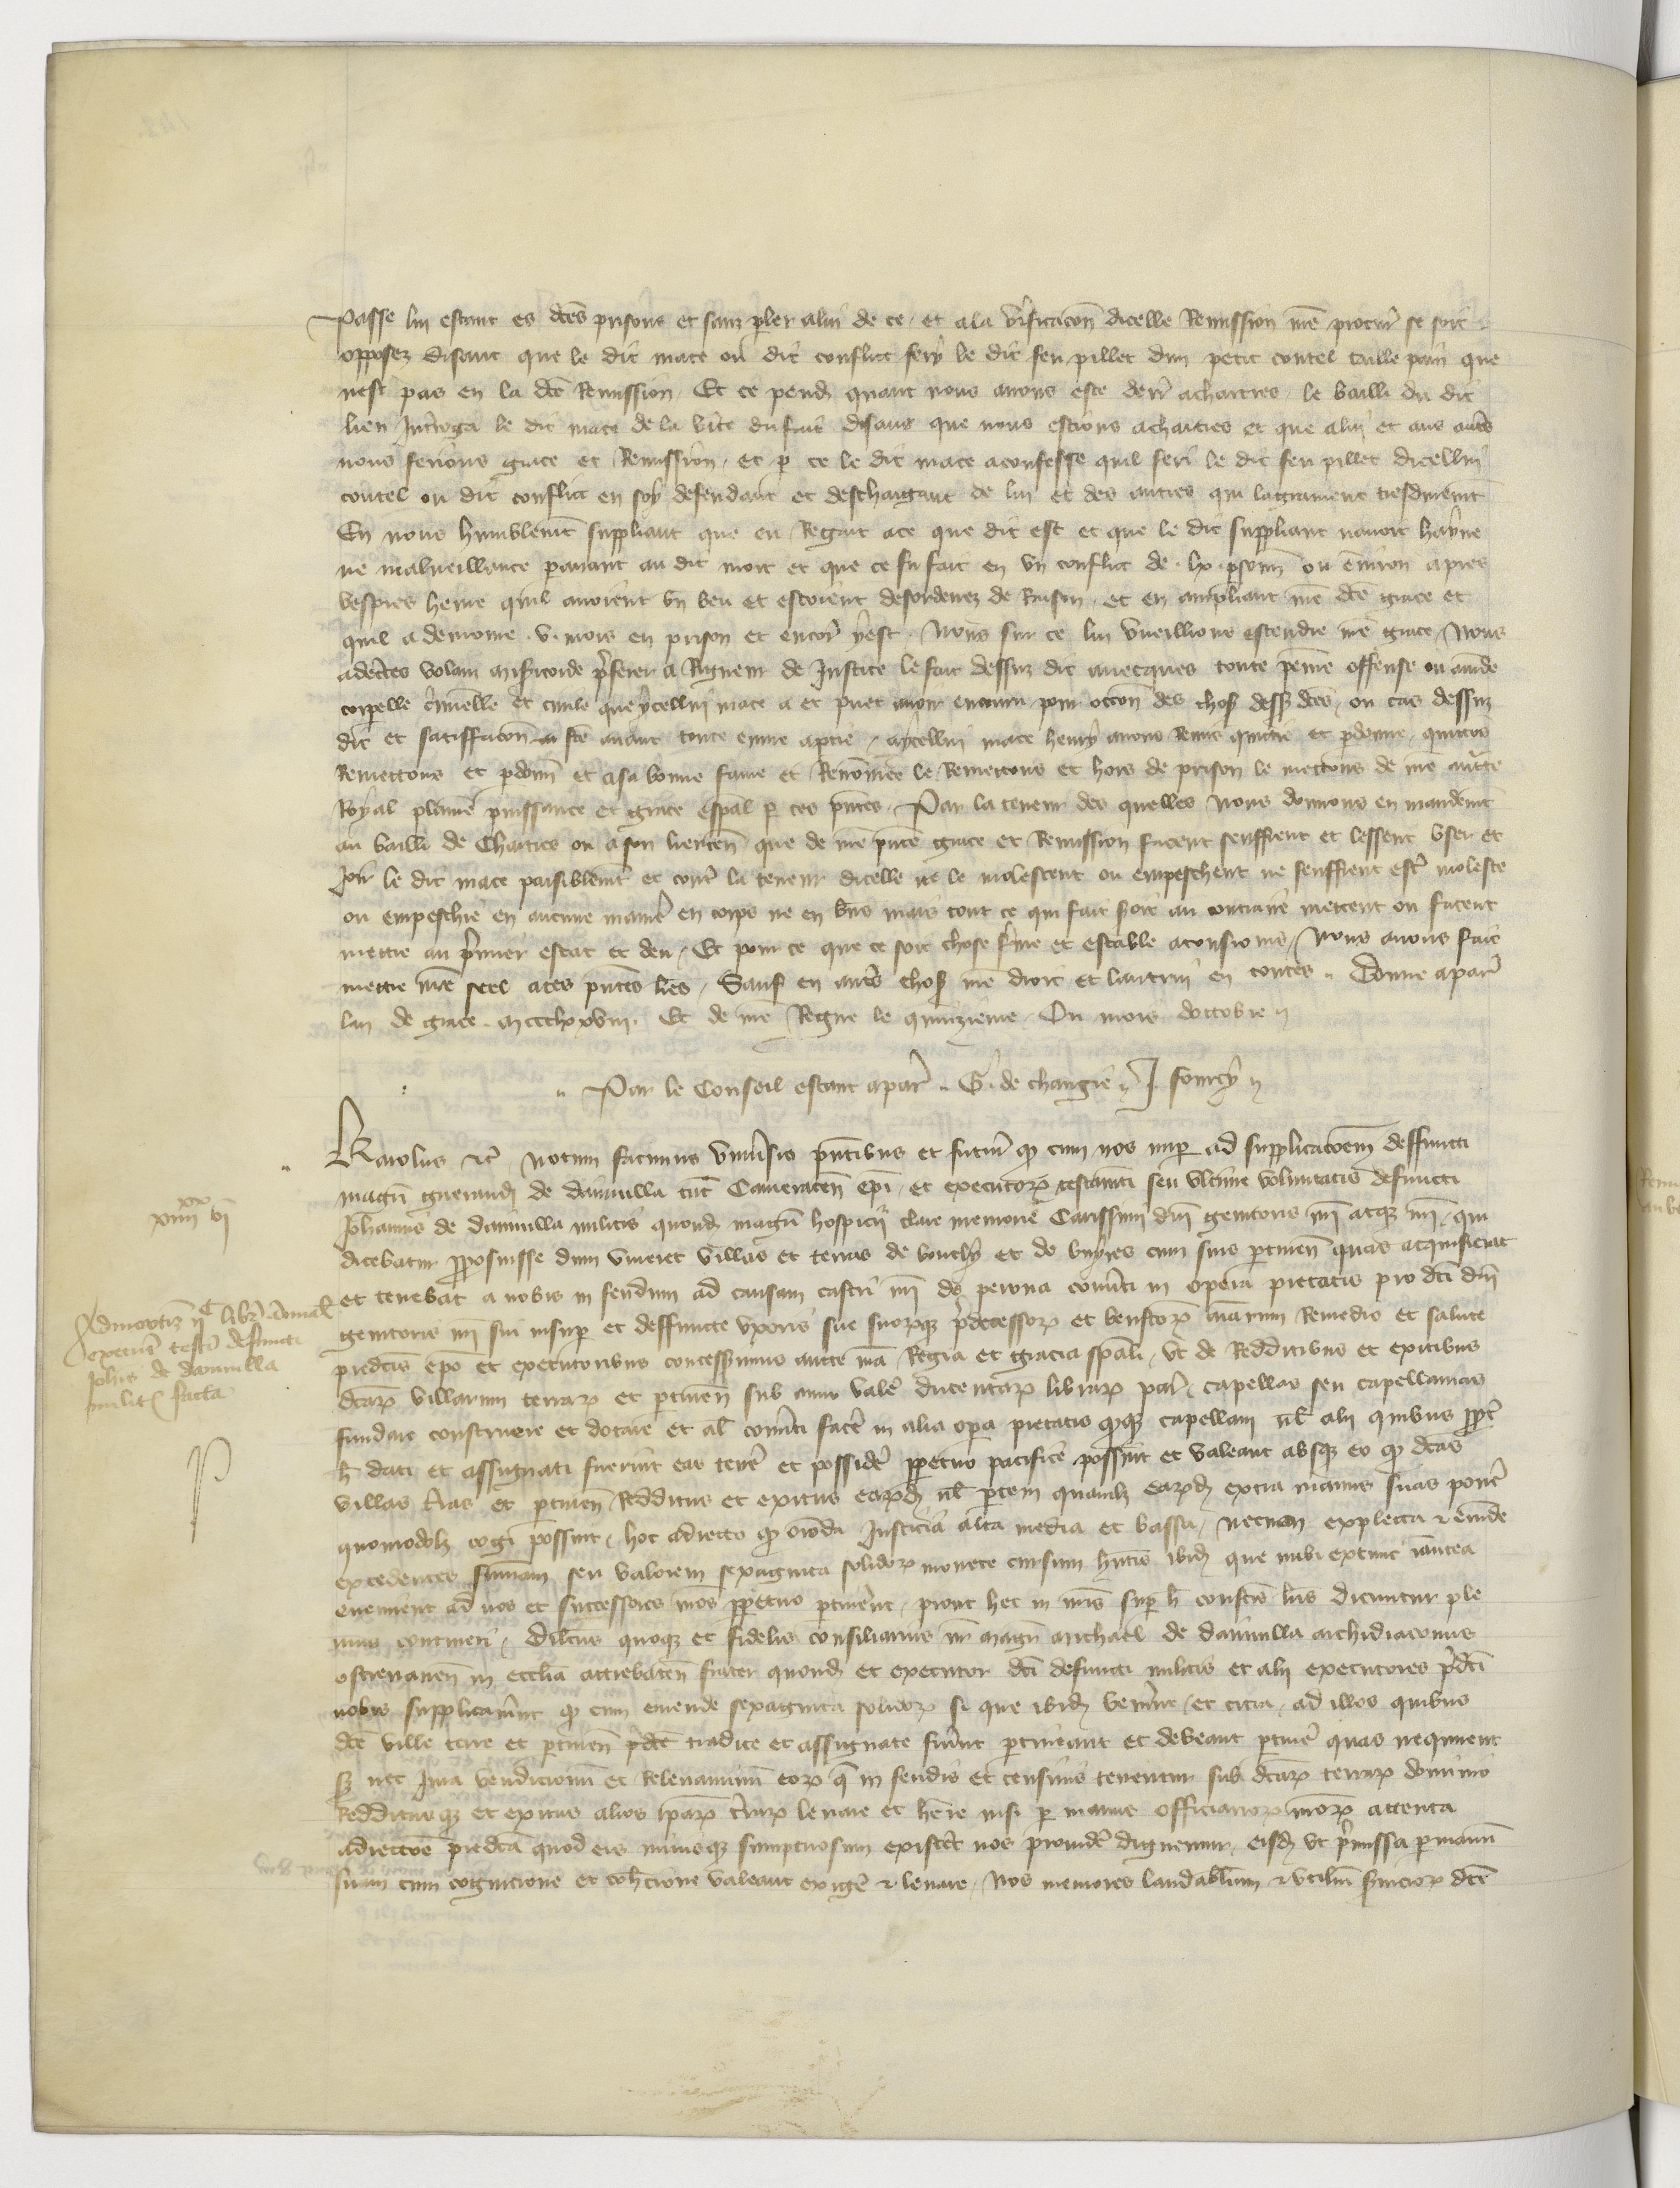 Passe lui estant es dces prisons et sanz pler a lui de ce et a la vificacon dicelle Remission nre procur se soit
opposez disant que le dit mace ou dit conflict fery le dit feu pillet dun petit coutel taille pain que
nest pas en la dce Remission Et ce pend quant nous avons este a chartres le bailli du dit
lieu Introga le dit mace de la vite du fait disant que nous estions a chartres et que a lui et aus autes
nous ferions grace et Remission et p ce le dit mace a confesse quil feri le dit feu pillet dicellui
coutel ou dit conflict en soy defendant et deschargant de lui et des autres qui
En nous humblemt suppliant que eu Regart a ce que dit est et que le dit suppliant navoit hayne
ne malveillance pavant au dit mort et que ce fu fait en un conflict de lx psonn ou environ apres
vespres heure quil avoient bn beu et estoient desordenez de Raison et en ampliant nre dce grace et
quil a demoure v mois en prison et encor y est Nous sur ce lui vueillions estendre nre grace Nous
adctes volans misicorde pferer a Rigueur de Justice le fait dessuz dit avecques toute peine offense ou amde
corpelle cimelle et civile que ycellui mace a et puet avoir encouru pour occon des chos dess dces ou cas dessuz
dit et satiffacon fce avant toute euvre a ptie a ycellui mace henry avons Remis quictie et pdonne quictons
Remettons et pdonn et a sa bonne fame et Renomee le Remettons et hors de prison le mettons de nre auctte
Royal plaine puissance et grace espal p ces pntes Par la teneur des quelles Nous donnons en mandemt
au bailli de Chartres ou a son lieuten que de nre pnte grace et Remission facent seuffrent et lessent user et
joir le dit mace paisiblemt et contr la teneur dicelle ne le molestent ou empeschent ne seuffrent estre moleste
ou empeschie en aucune manie en corps ne en biens mais tout ce qui fait soit au contraire mettent ou facent
mettre au primier estat et deu Et pour ce que ce soit chose ferme et estable a tousjours Nous avons fait
mettre nre seel a ces pntes lres Sauf en autes chos nre droit et lautrui en toutes Donne a par
lan de grace mccclxxviii Et de nre Regne le quinzieme Ou mois doctobre
Par le Conseil estant a par G de changie J fourcy
Karolus etc Notum facimus Universis pntibus et futur q cum nos nup ad supplicacoem deffuncti
magri guerardi de dainvilla tunc Cameracen epi et executor testamti seu ultime voluntatis defuncti
Johannis de dainvilla militis quond magri hospicii clare memorie Carissimi dni genitoris nri atq nri qui
dicebatur pposuisse dum viveret villas et terras de bouchy et de buyres cum suis ptinen quas acquisierat
et tenebat a nobis in feudum ad causam castri nri de perona conviti in opera pietatis pro dci dni
genitoris nri sui insup et deffuncte uxoris sue suorq pdecessor et benfcor aiarum Remedio et salute
predcis epo et executoribus concessimus aucte nra Regia et gracia spali ut de Redditibus et exitibus
dcar villarum terrar et ptinen sub anno valor ducentar librar par capellas seu capellanias
fundare construere et dotare et al conviti facere in alia opa pietatis quodq capellani vl alii quibus ppt
h dati et assignati fuerint eas tenere et possidere ppetuo pacifice possint et valeant absq eo q dcas
villas tras et ptinen Redditus et exitus eard vl ptem quamlz eard extra manus suas poner
quomodolz cogi possint hoc adiecto q oioda Justicia alta media et bassa necnon expleta et emde
excedentes summam seu valorem sexaginta solidor monete cursum hntis ibid que inibi extunc inantea
evenirent ad nos et successores nros ppetuo ptinent prout hec in nris sup h confcis lris dicuntur ple
nius contineri Dilcus quoq et fidelis consiliarius nr magr michael de dainvilla archidiaconus
ostrevanen in ecclia attrebaten frater quond et executor dci defuncti militis et alii executores pdci
nobis supplicarunt q cum emende sexaginta solidor si que ibid venint et citra ad illos quibus
dce ville terre et ptinen pdce tradite et assignate fuint ptineant et debeant ptine quas nequirent
sz nec Jura vendicionu et Relevaminu eor q in feudis et censivis tenentur sub dcar terrar dominio
Redditusq et exitus alios ipar terrar levare et here nisi p manus officiarior nror attenta
adiectoe predca quod eis nimisq sumptuosum existet nos provide dignemur eisd ut pmissa p manu
suam cum cognicione et cohcione valeant exige et levare Nos memores laudabilium et utilium sviciorum dce
xiiii xx vi
Admortiz ii c libr annual
execut testi defuncti
Johis de dainvilla
milit facta